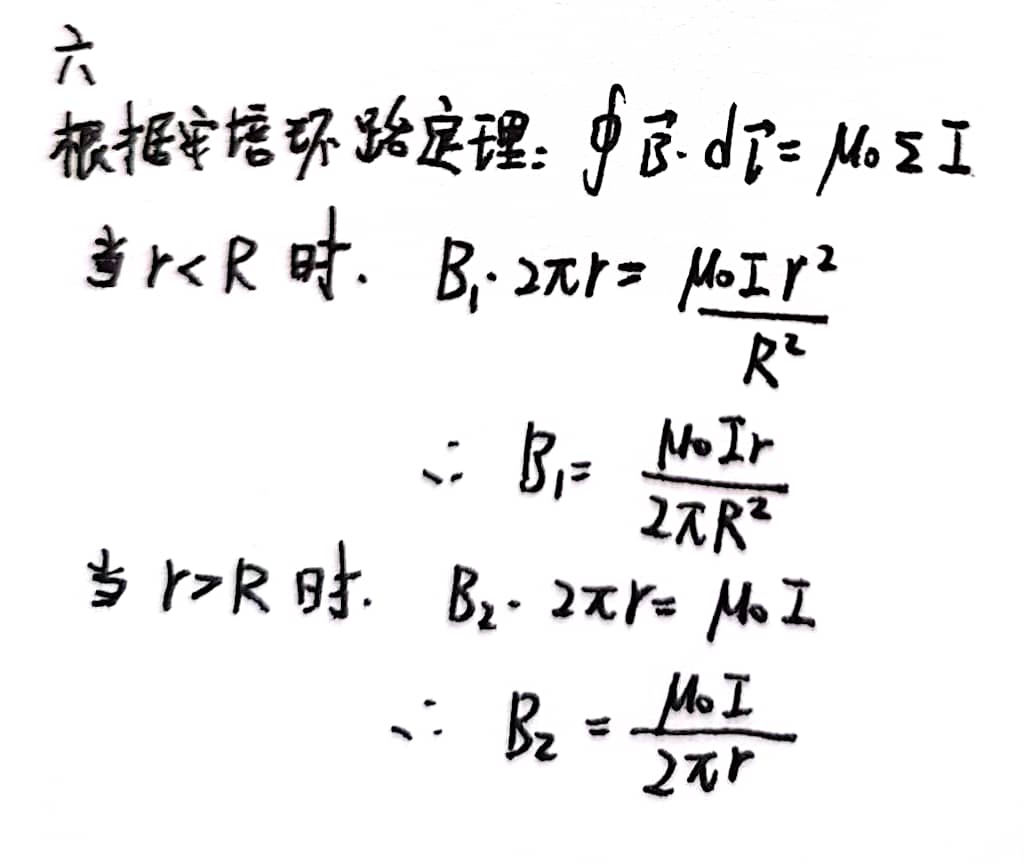 六
根据安培环路定理: ∮B⃗·dl⃗ = μ₀ΣI
当 r<R 时. B₁·2πr = μ₀Ir²/R²
∴ B₁ = μ₀Ir/2πR²
当 r>R 时. B₂·2πr = μ₀I
∴ B₂ = μ₀I/2πr